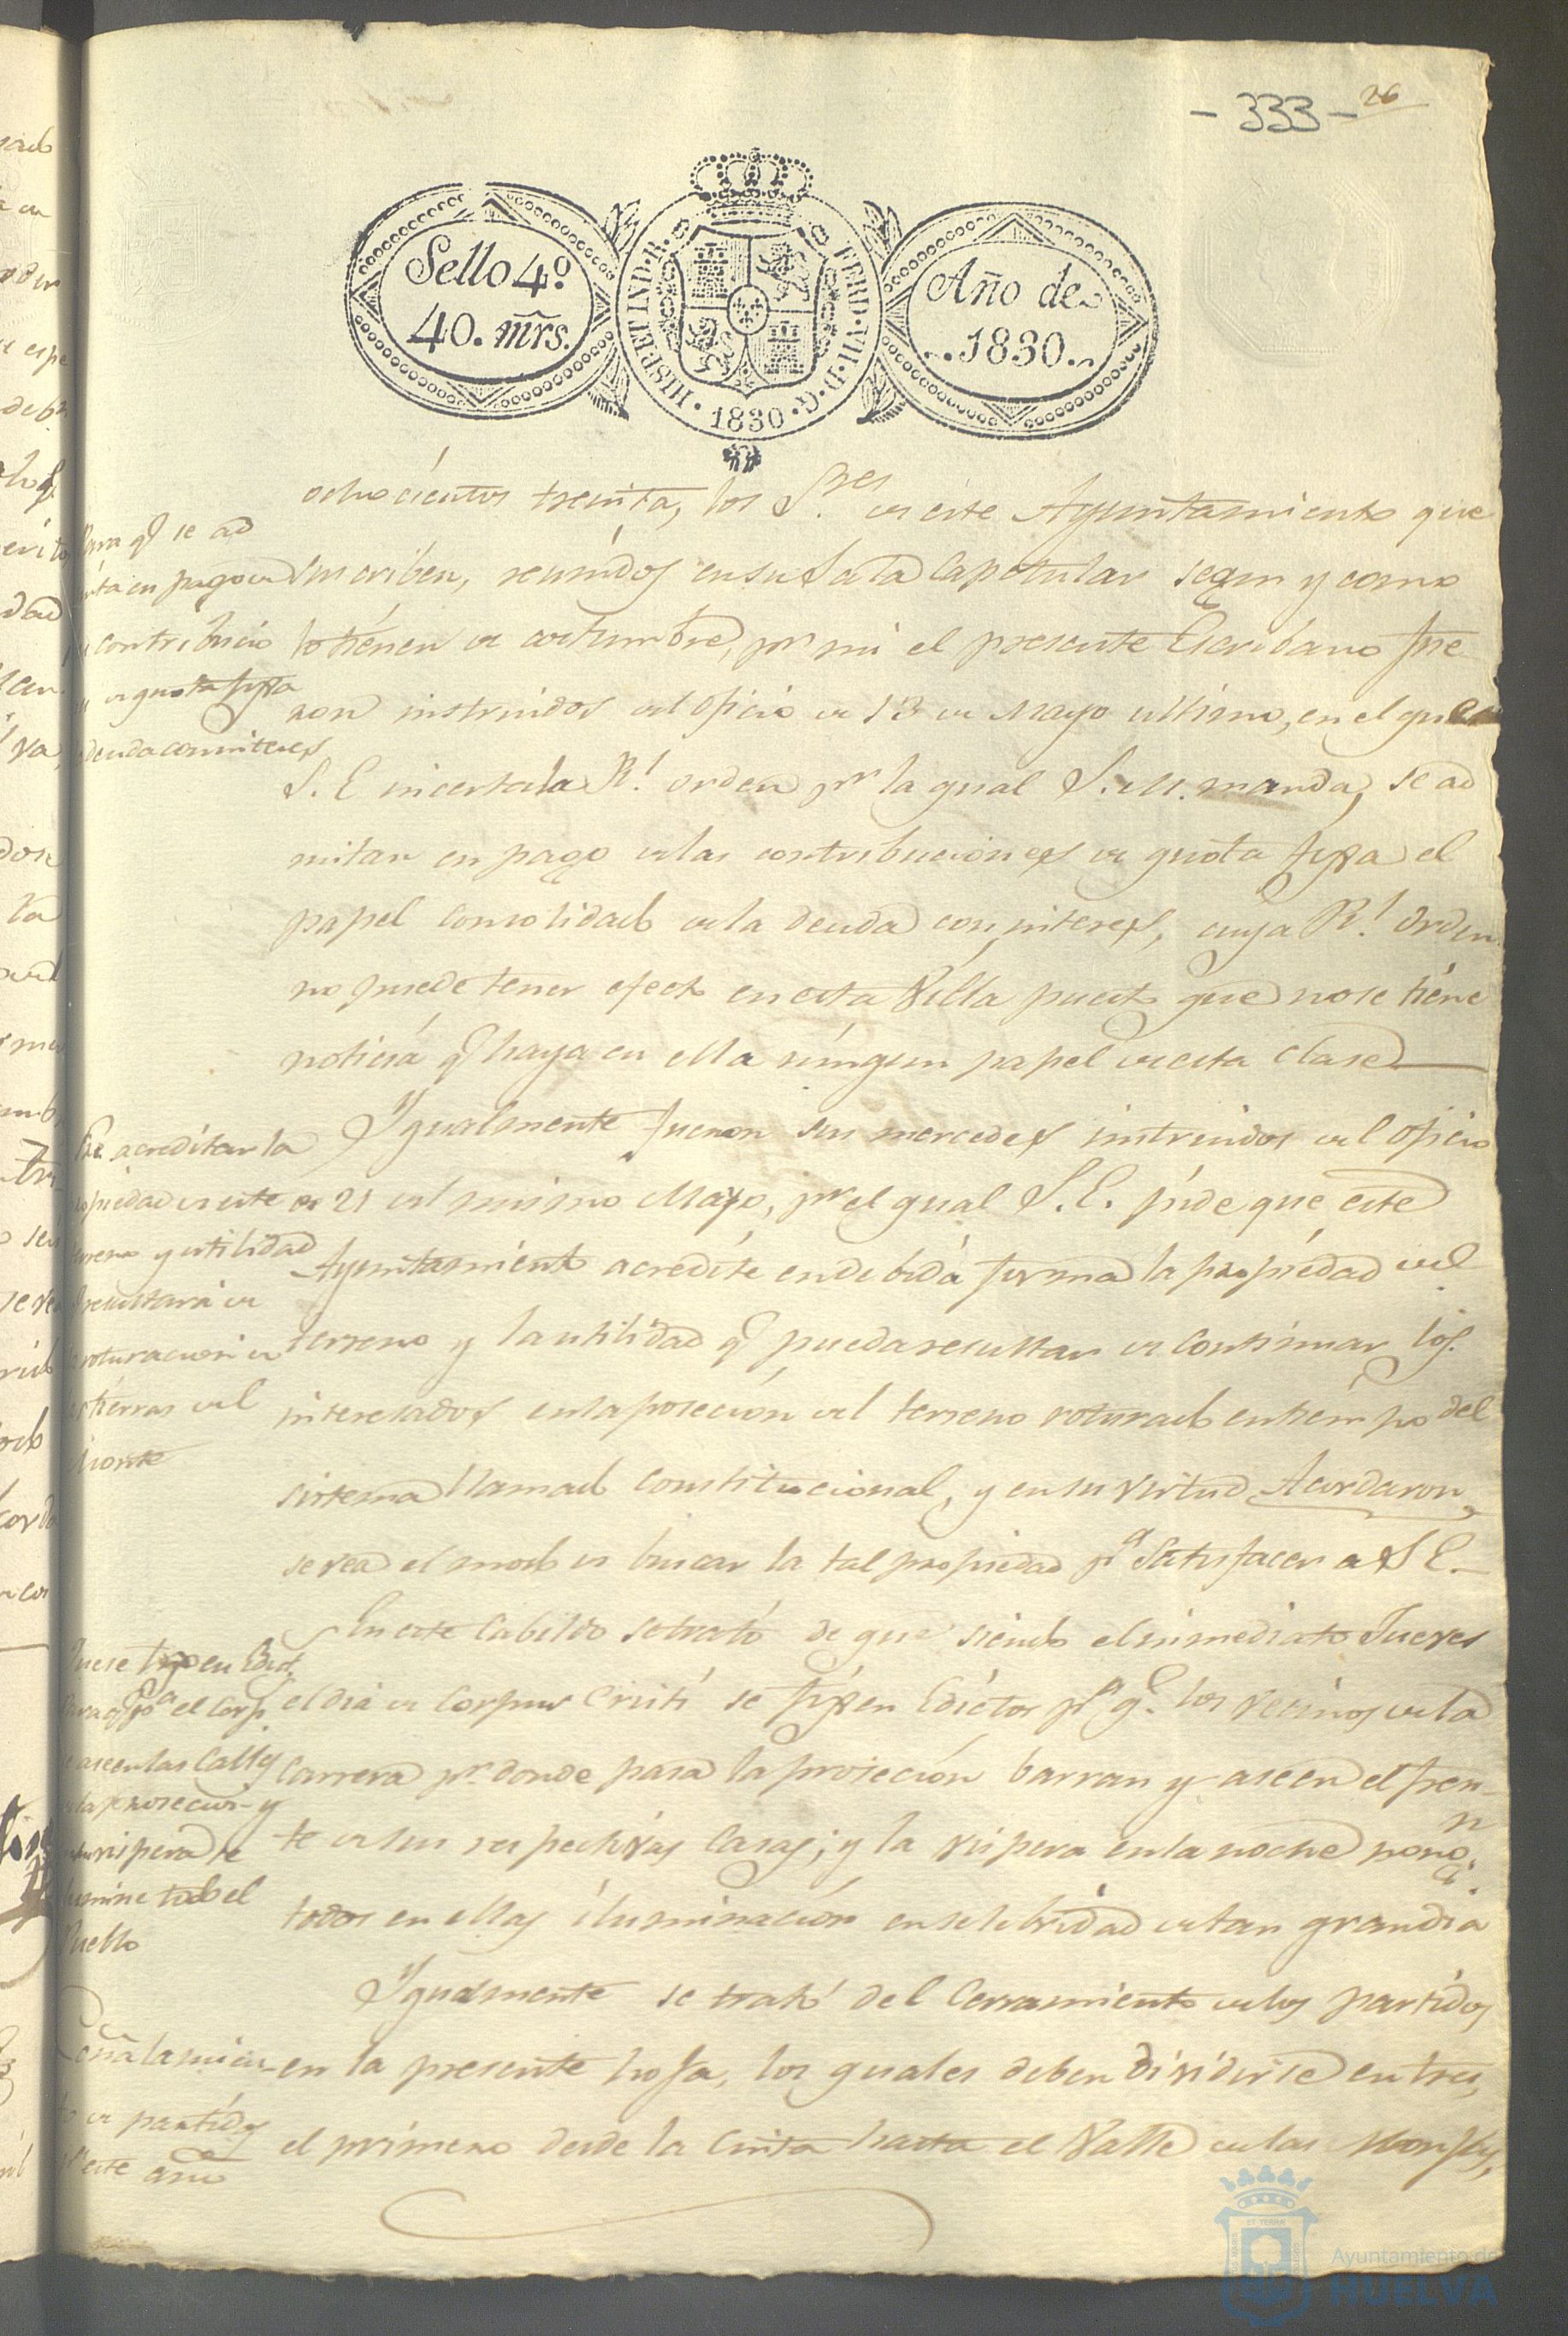 - 333 - 26
Sello 4º
40. mrs.
HISP. ET IND. R. FERD. VII. D. G. 1830
Año de
1830.
ochocientos treinta, los S.res de este Ayuntamiento que
suscriben, reunidos en su Sala Capitular segun y como
lo tienen de costumbre, pr mi el presente Escribano fue
ron instruidos del oficio de 13 de Mayo ultimo, en el que
S. E incerta la Rl orden pr la qual S. M. manda, se ad
mitan en pago de las contribuciones de quota fixa el
papel consolidado de la deuda con interes, cuya Rl orden
no puede tener efecto en esta Villa puesto que no se tiene
noticia q haya en ella ningun papel de esta clase
Ygualmente fueron sus mercedes instruidos del oficio
de 21 del mismo Mayo, pr el qual S. E. pide que este
Ayuntamiento acredite en debida forma la propiedad del
terreno y la utilidad q pueda resultar de continuar los
interesados en la posecion del terreno roturado en tiempo del
sistema llamado Constitucional, y en su virtud Acordaron
se vea el modo de buscar la tal propiedad pa Satisfacer a S E.
En este Cabildo se trató de que siendo el inmediato Jueves
el dia de Corpus Cristi se fixen Edictos pa q. los vecinos de la
Carrera pr donde pasa la prosecion barran y aseen el fren
te de sus respectivas Casas; y la vispera en la noche pongn
todos en ellas iluminacion en selebridad de tan gran dia
Ygualmente se trató del Cerramiento de los partidos
en la presente hoja, los quales deben dividirse en tres,
el primero desde la Cinta hasta el Valle de las Monjas,
Para q se ad
mita en pago de
contribucio
de quota fixa
deuda con interes
acreditar la
propiedad de este
terreno y utilidad
resultará de
roturacion de
tierras del
Monte
Que se fixen Edict
para q pa el Corps
aseen las Calles
la prosecion y
vispera se
ilumine todo el
Pueblo
Señalamien
to de partidos
pa este año
Ayuntamiento de
HUELVA